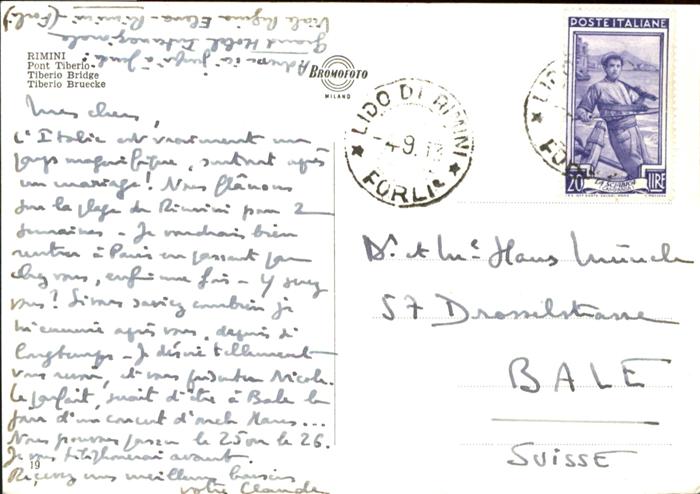 Viale Regina Elena Rimini (Forli)
Grand Hotel Internazionale
Adresse ici jusqu'à jeudi:
RIMINI
Pont Tiberio
Tiberio Bridge
Tiberio Bruecke
BROMOFOTO
MILANO
LIDO DI RIMINI
4.9.
FORLI
POSTE ITALIANE
20 LIRE
Mes chers,
L'Italie est vraiment un
pays magnifique, surtout après
un mariage! Nous flânons
sur la plage de Rimini pour 2
semaines - Je voudrais bien
rentrer à Paris en passant par
chez vous, enfin une fois - Y serez
vous? Si vous saviez combien je
m'ennuie après vous, depuis si
longtemps - Je désire tellement
vous revoir, et vous présenter Nicole.
Le parfait, serait d'être à Bâle le
jour d'un concert d'oncle Hans...
Nous pouvons passer le 25 ou le 26.
Je vous téléphonerai avant.
Recevez mes meilleurs baisers
votre Claude
19
Dr et Me Hans Münch
57 Drosselstrasse
BALE
SUISSE